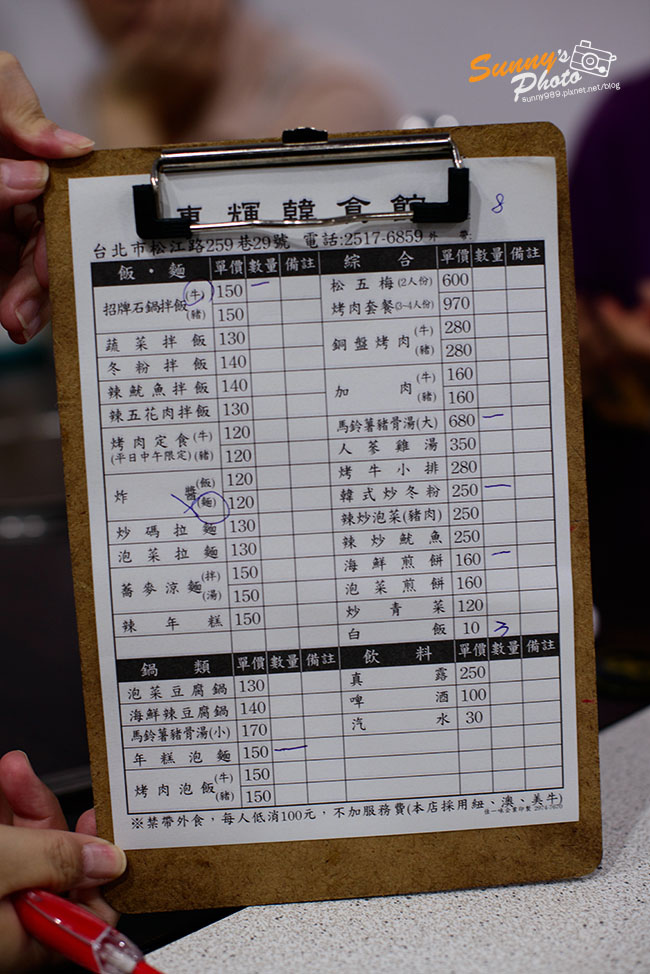 Sunny's
Photo
sunny989.pixnet.net/blog
東輝韓食館
8
台北市松江路259巷29號 電話:2517-6859 外 帶:
飯・麵 單價 數量 備註
招牌石鍋拌飯 (牛) 150 一
(豬) 150
蔬菜拌飯 130
冬粉拌飯 140
辣魷魚拌飯 140
辣五花肉拌飯 130
烤肉定食 (牛) 120
(平日中午限定) (豬) 120
炸醬 (飯) 120
(麵) 120
炒碼拉麵 130
泡菜拉麵 130
蕎麥涼麵 (拌) 150
(湯) 150
辣年糕 150
鍋類 單價 數量 備註
泡菜豆腐鍋 130
海鮮辣豆腐鍋 140
馬鈴薯豬骨湯(小) 170
年糕泡麵 150 一
烤肉泡飯 (牛) 150
(豬) 150
綜合 單價 數量 備註
松五梅(2人份) 600
烤肉套餐(3~4人份) 970
銅盤烤肉 (牛) 280
(豬) 280
加肉 (牛) 160
(豬) 160
馬鈴薯豬骨湯(大) 680 一
人蔘雞湯 350
烤牛小排 280
韓式炒冬粉 250 一
辣炒泡菜(豬肉) 250
辣炒魷魚 250
海鮮煎餅 160 一
泡菜煎餅 160
炒青菜 120
白飯 10 3
飲料 單價 數量 備註
真露 250
啤酒 100
汽水 30
※禁帶外食，每人低消100元，不加服務費(本店採用紐、澳、美牛)